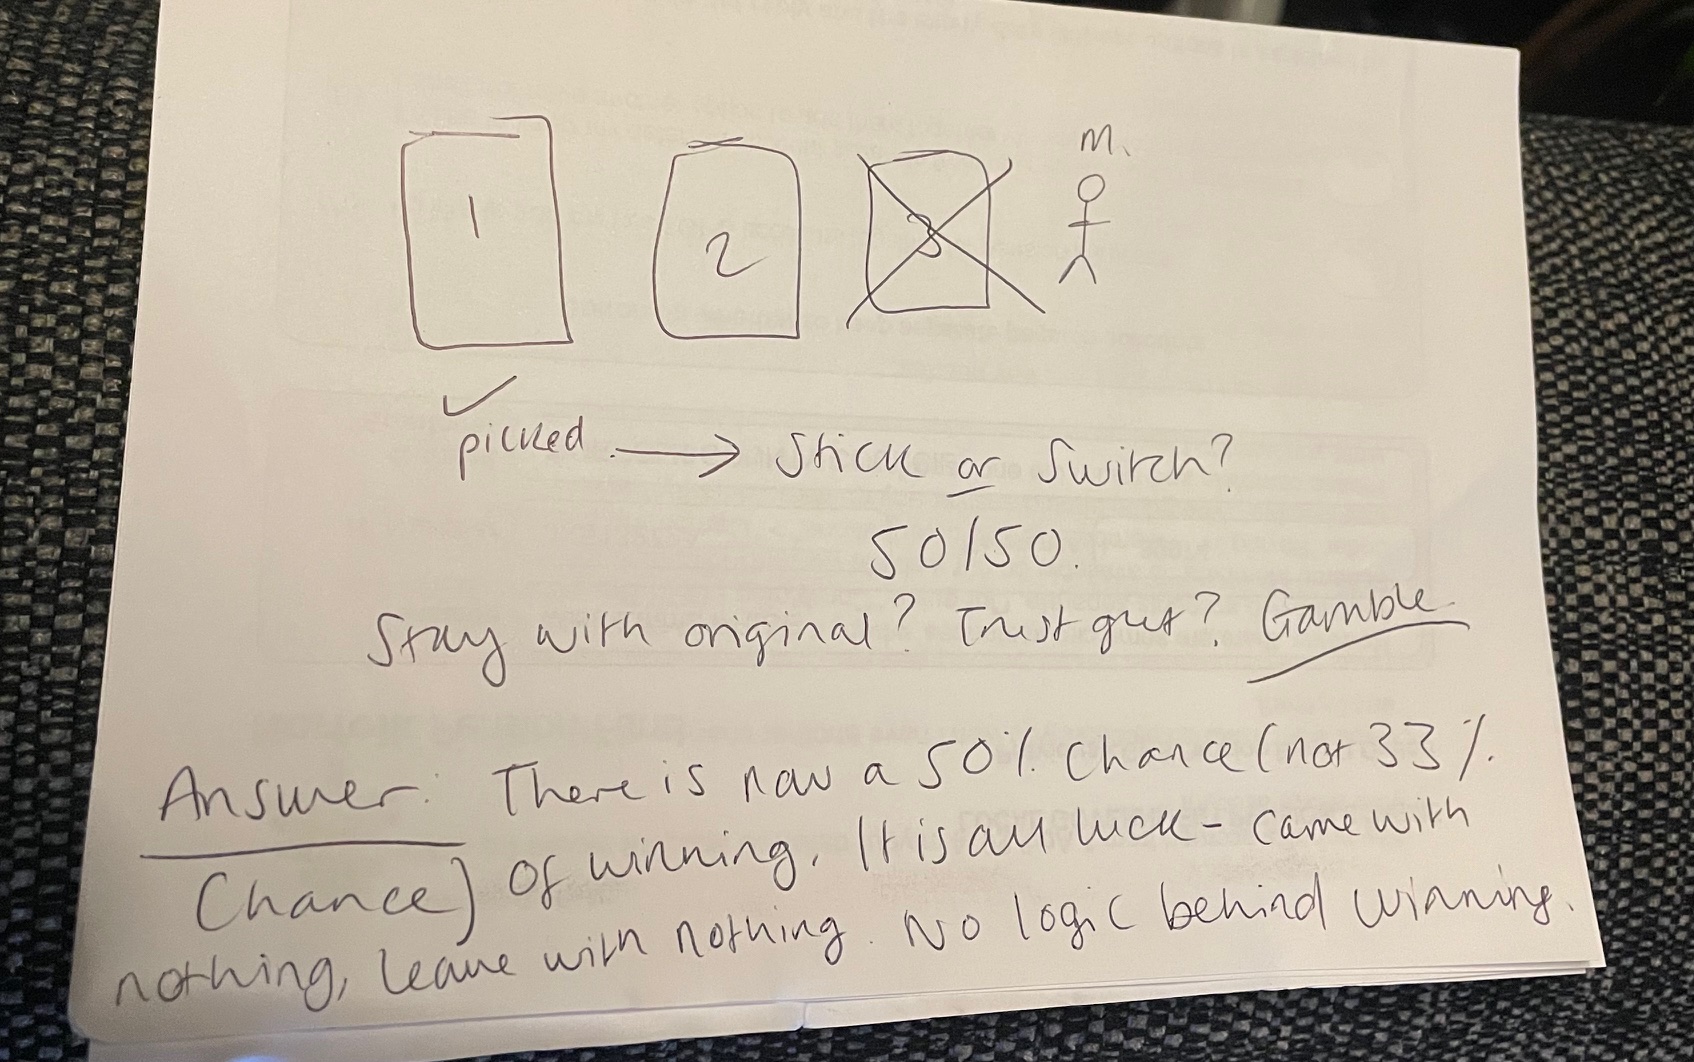 M.
1 2 3
picked → Stick or Switch?
50/50.
Stay with original? Trust gut? Gamble
Answer: There is now a 50% chance (not 33%
Chance) of winning. It is all luck - came with
nothing, leave with nothing. No logic behind winning.